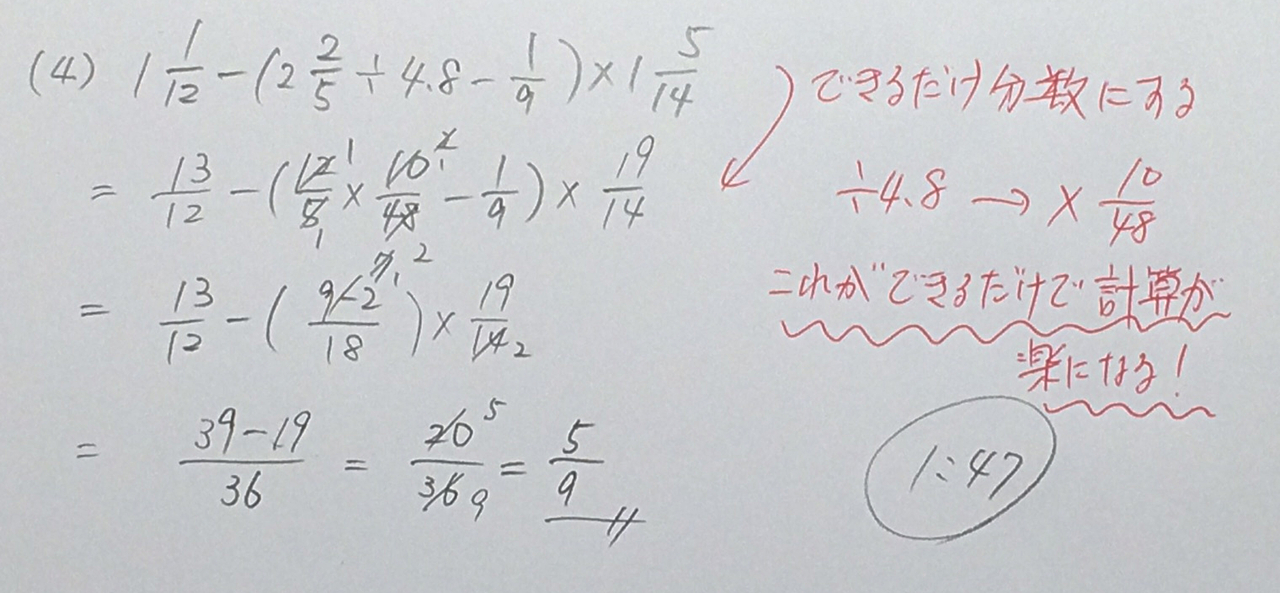 (4) 1 1/12 − (2 2/5 ÷ 4.8 − 1/9) × 1 5/14
= 13/12 − (12/5 × 10/48 − 1/9) × 19/14
= 13/12 − (9−2/18) × 19/14 2
= 39−19/36 = 20 5/36 9 = 5/9
できるだけ分数にする
÷4.8 → × 10/48
これができるだけで計算が
楽になる!
1:47